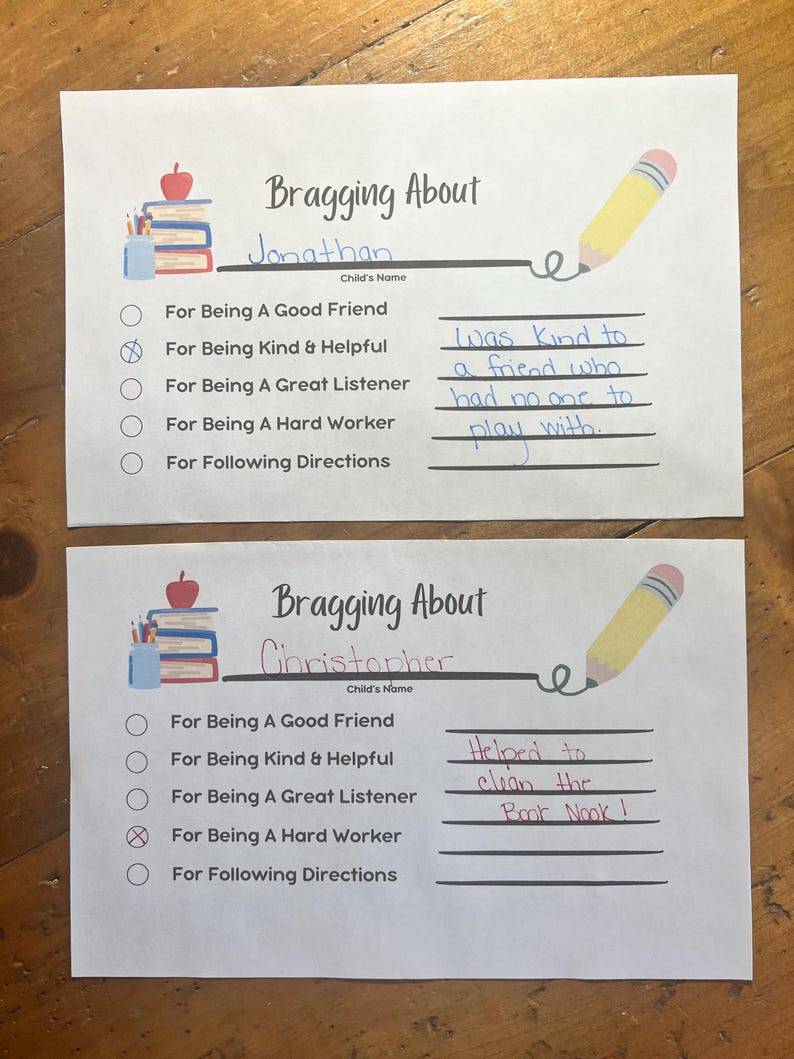 Bragging About
Jonathan
Child's Name
For Being A Good Friend
For Being Kind & Helpful
For Being A Great Listener
For Being A Hard Worker
For Following Directions
Was Kind to
a friend who
had no one to
play with.
Bragging About
Christopher
Child's Name
For Being A Good Friend
For Being Kind & Helpful
For Being A Great Listener
For Being A Hard Worker
For Following Directions
Helped to
clean the
Book Nook!